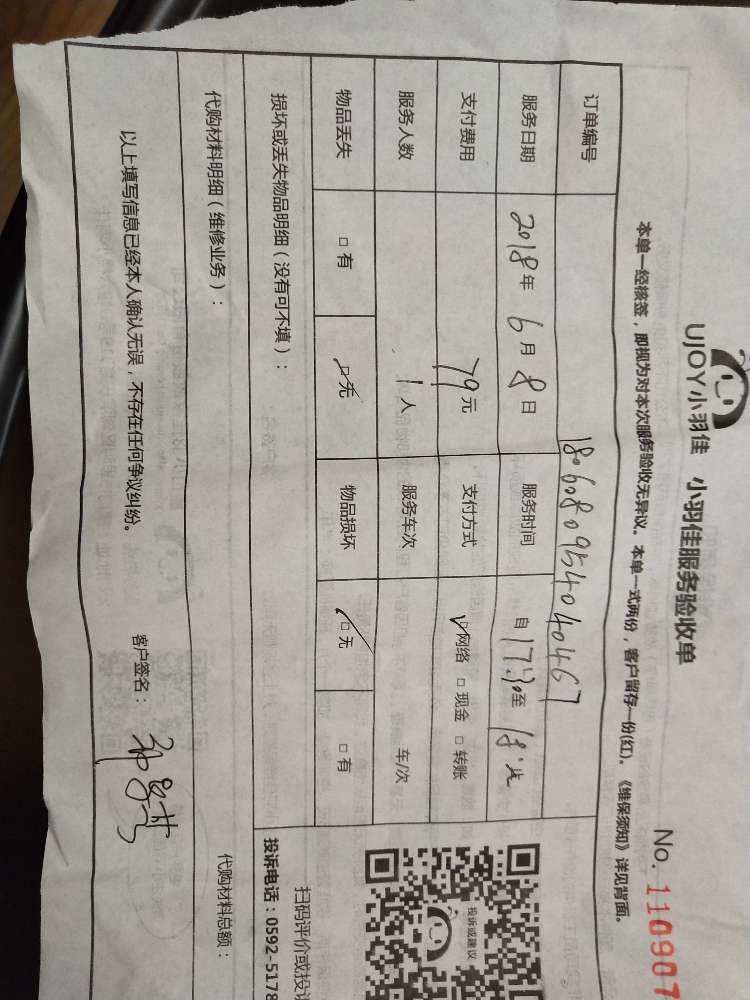 UJOY小羽佳 小羽佳服务验收单
No. 110907
本单一经核签，即视为对本次服务验收无异议。本单一式两份，客户留存一份(红)。《维保须知》详见背面。
订单编号 1806080954040467
服务日期 2018年 6月 8日 服务时间 自 17:30 至
支付费用 79元 支付方式 网络 □ 现金 □ 转账
服务人数 1人 服务车次 车/次
物品丢失 □ 有 □ 无 物品损坏 □ 无 □ 有
损坏或丢失物品明细（没有可不填）：
投诉或建议
扫码评价或投
投诉电话：0592-5178
代购材料明细（维修业务）：
代购材料总额：
以上填写信息已经本人确认无误，不存在任何争议纠纷。
客户签名：